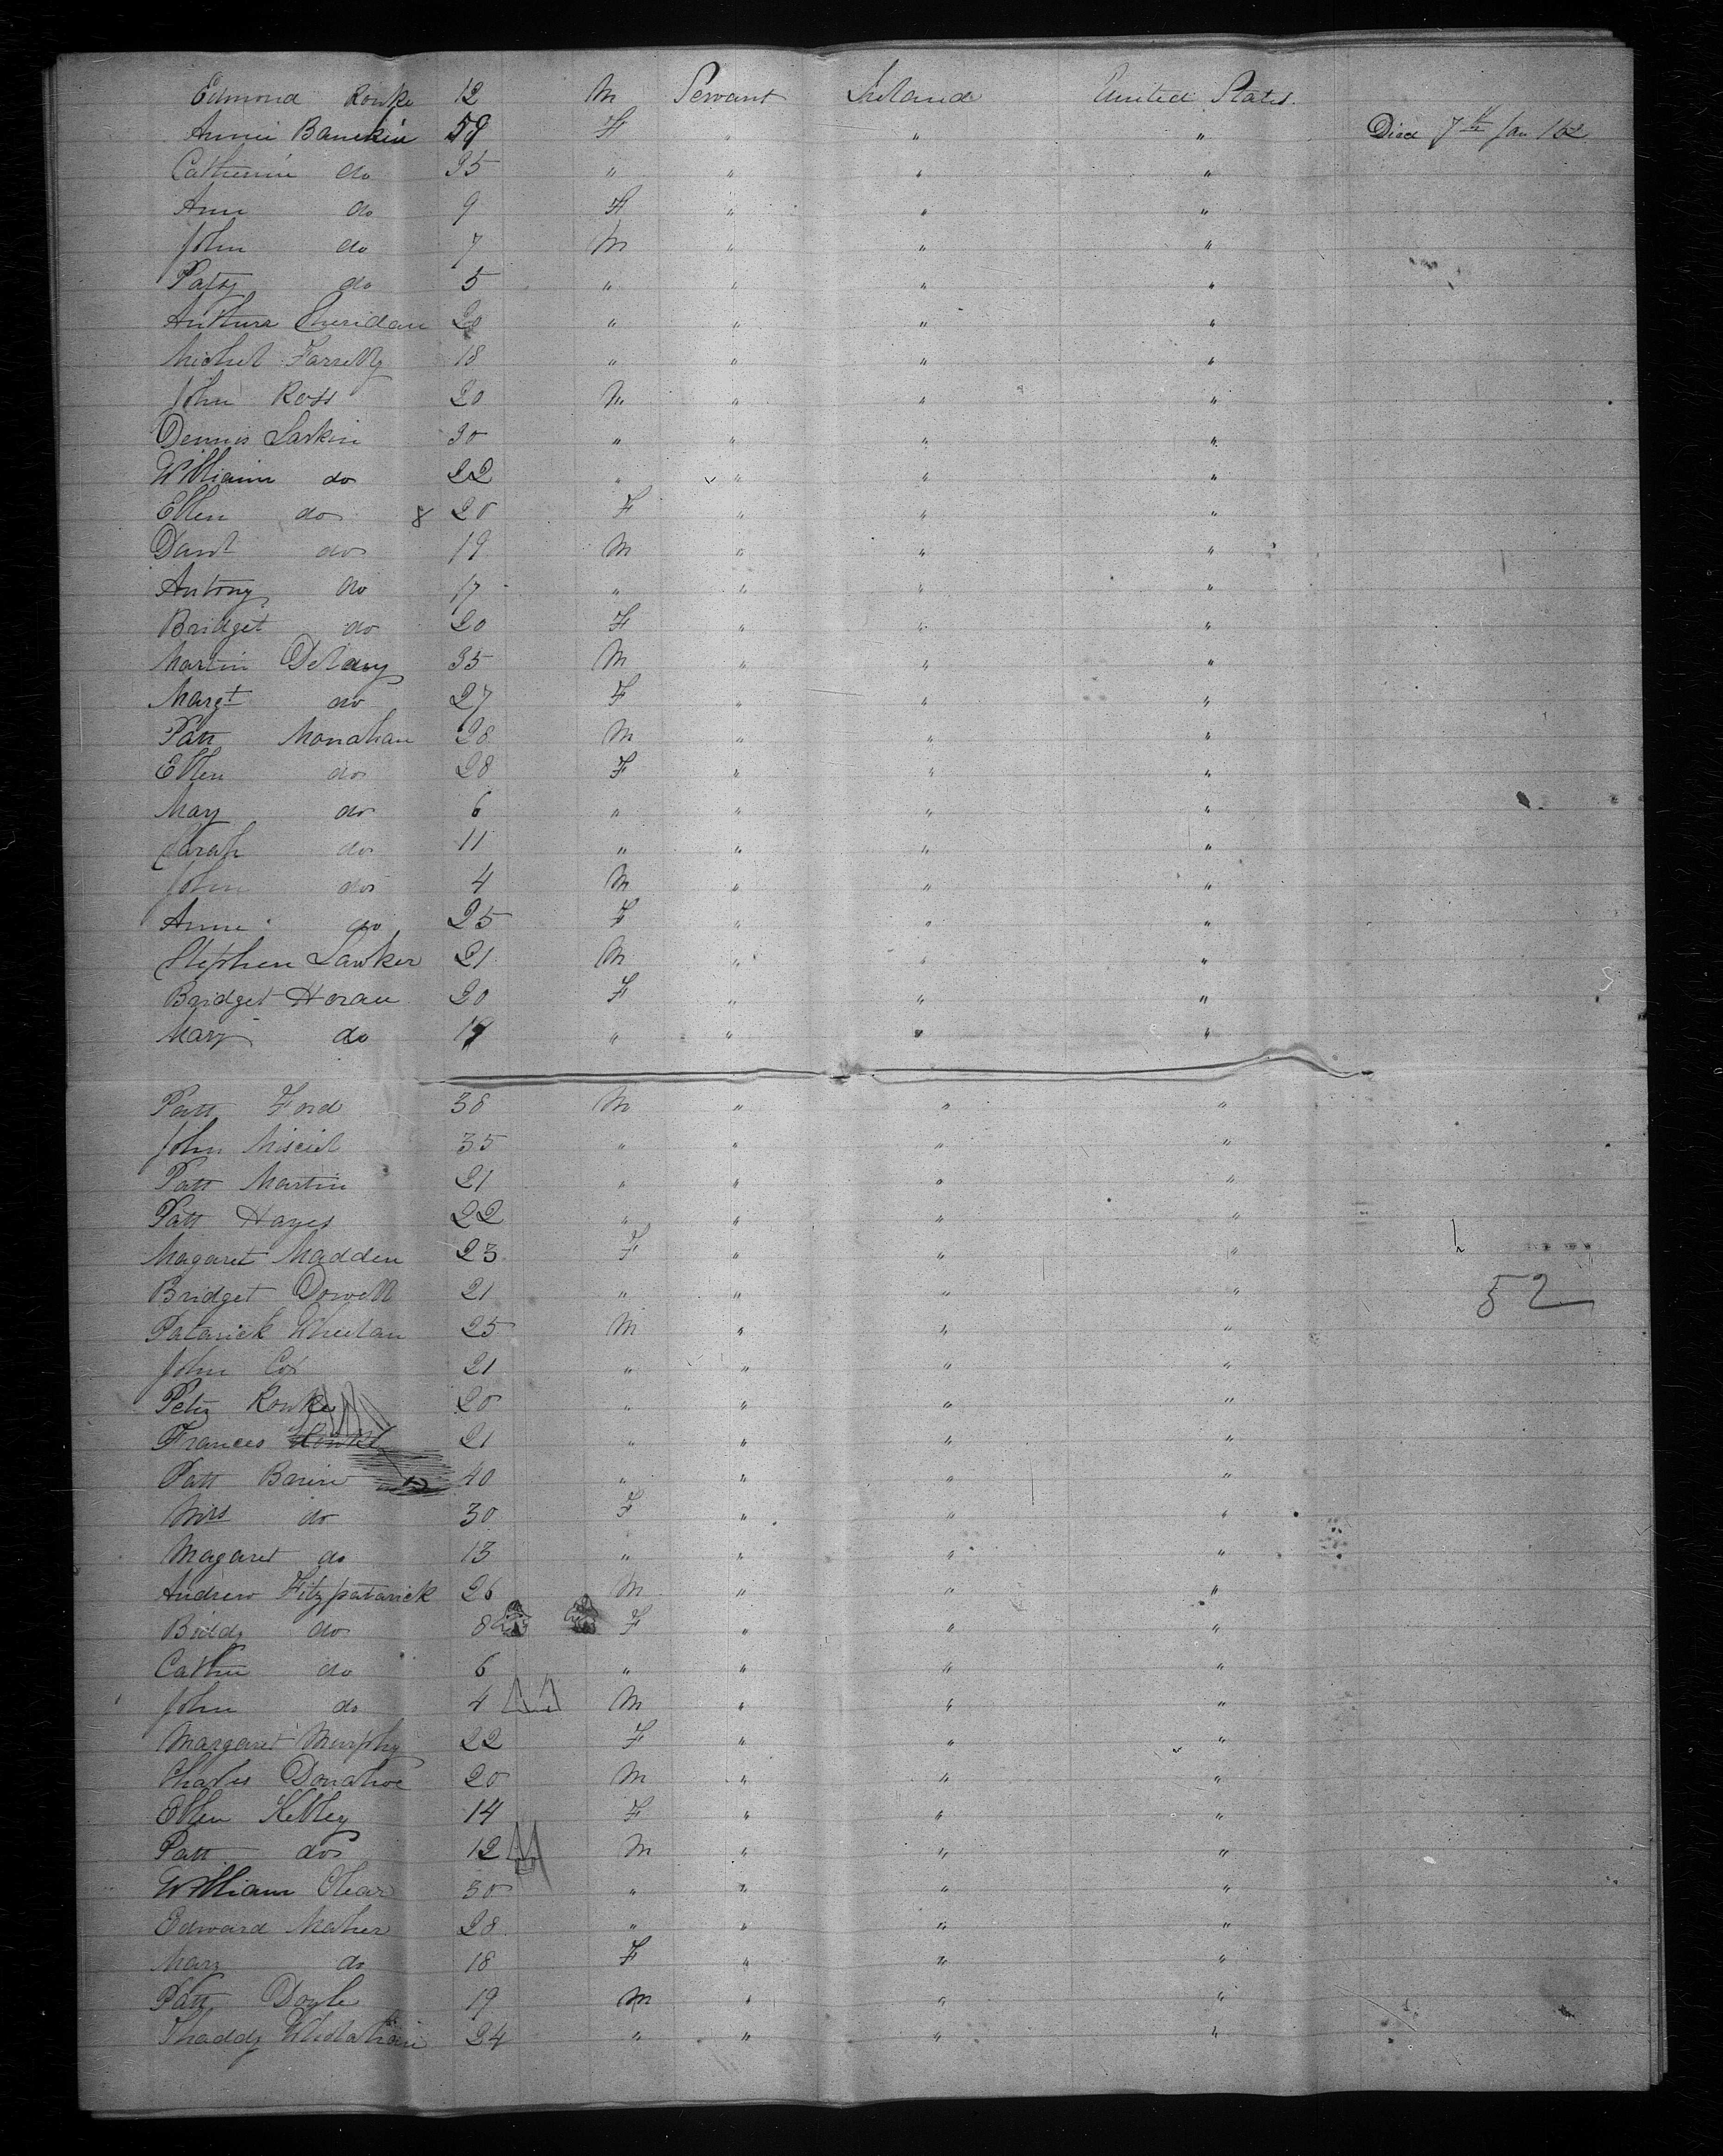 Edmond Rouke 12 M Servant Ireland United States.
Annie Banekin 59 F " " " Died 7th Jan
Catherine do 35 " " " "
Ann do 9 F " " "
John do 7 M " " "
Patsy do 5 " " " "
Authur Sheridan 20 " " " "
Michel Farrelly 18 " " " "
John Ross 20 M " " "
Dennis Larkin 30 " " " "
William do 22 " " " "
Ellen do 8 20 F " " "
Danl do 19 M " " "
Antony do 17 " " " "
Bridget do 20 F " " "
Martin Delany 35 M " " "
Margt do 27 F " " "
Patt Monahan 28 M " " "
Ellen do 28 F " " "
Mary do 6 " " " "
Sarah do 11 " " " "
John do 4 M " " "
Anne do 25 F " " "
Stephen Lawker 21 M " " "
Bridget Horan 20 F " " "
Mary do 19 " " " "
Patt Ford 38 M " " "
John 35 " " " "
Patt Martin 21 " " " "
Patt Hayes 22 " " " "
Magaret Madden 23 F " " "
Bridget Dowell 21 " " " " 52
Patarick Wheelan 25 M " " "
John Cox 21 " " " "
Peter Rouke 20 " " " "
Frances Rouke 21 " " " "
Patt 40 " " " "
Mrs do 30 F " " "
Magaret do 13 " " " "
Andrew Fitzpatarick 26 M " " "
Biddy do 8 F " " "
Cathn do 6 " " " "
John do 4 M " " "
Margaret Murphy 22 F " " "
Charles Donahoe 20 M " " "
Ellen Kelley 14 F " " "
Patt do 12 M " " "
William Olear 30 " " " "
Edward Maher 28 " " " "
Mary do 18 F " " "
Patt Doyle 19 M " " "
Thaddy 24 " " " "